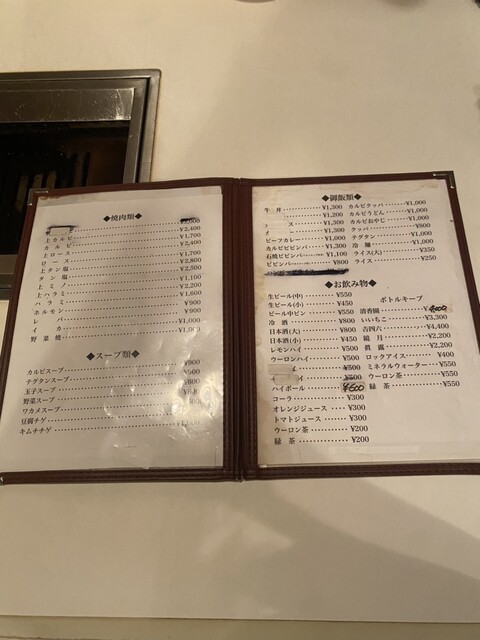 ◆焼肉類◆
上カルビ ¥2,400
カルビ ¥1,700
上ロース ¥2,400
ロース ¥1,700
上タン塩 ¥2,800
タン塩 ¥2,300
上ミノ ¥1,100
上ハラミ ¥2,200
ハラミ ¥1,600
ホルモン ¥900
レバー ¥900
イカ ¥1,000
野菜焼
◆スープ類◆
カルビスープ
テグタンスープ
玉子スープ
野菜スープ
ワカメスープ
豆腐チゲ
キムチチゲ
◆御飯類◆
牛丼 ¥1,300
¥1,200
¥1,300
¥1,300
ビーフカレー ¥1,000
カルビビビンバ ¥1,300
石焼ビビンバ ¥1,100
ビビンバ ¥800
カルビクッパ ¥1,000
カルビうどん ¥1,000
カルビおやじ ¥1,000
クッパ ¥800
テグタン ¥1,000
冷麺 ¥1,000
ライス(大) ¥350
ライス ¥250
◆お飲み物◆
生ビール(中) ¥550
生ビール(小) ¥450
ビール中ビン ¥550
冷酒 ¥800
日本酒(大) ¥800
日本酒(小) ¥450
レモンハイ ¥500
ウーロンハイ ¥500
¥500
¥500
ハイボール ¥500
コーラ ¥300
オレンジジュース ¥300
トマトジュース ¥300
ウーロン茶 ¥200
緑茶 ¥200
ボトルキープ
清香園
いいちこ ¥3,300
吉四六 ¥4,400
鏡月 ¥2,200
眞露 ¥2,200
ロックアイス ¥400
ミネラルウォーター ¥550
ウーロン茶 ¥550
緑茶 ¥550